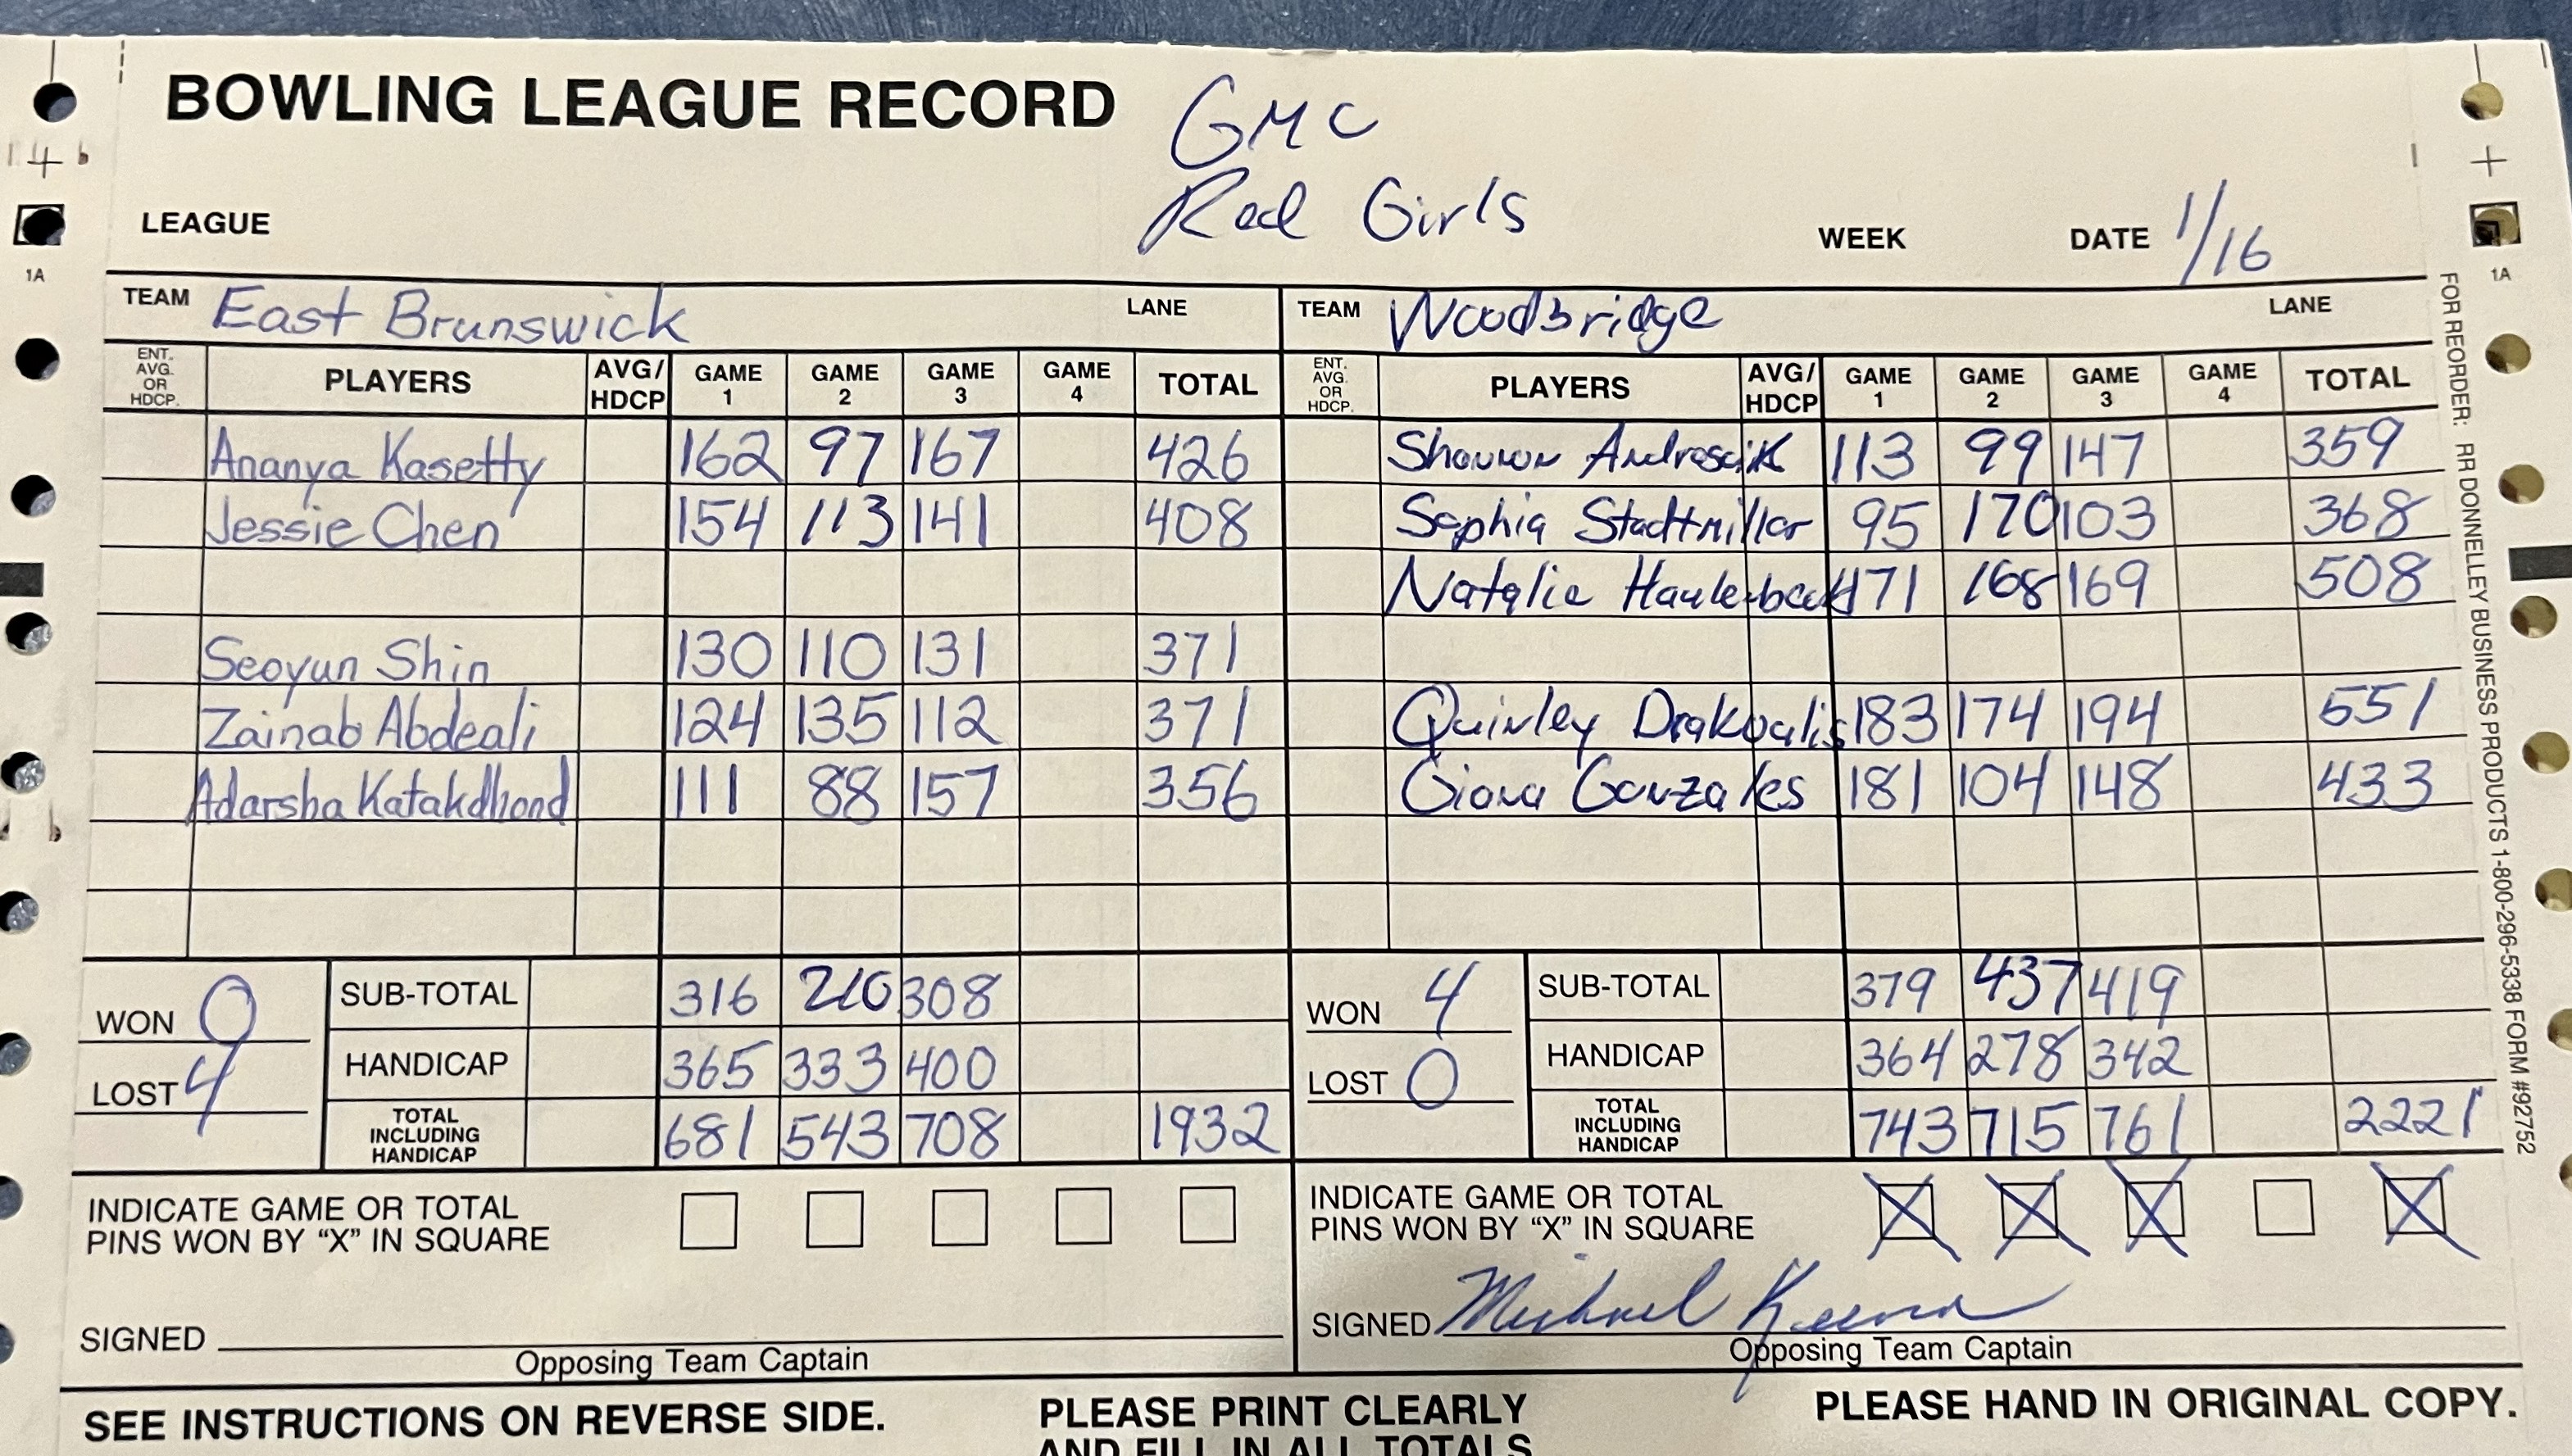 BOWLING LEAGUE RECORD
GMC
Red Girls
LEAGUE
WEEK
DATE 1/16
TEAM East Brunswick LANE
ENT. AVG. OR HDCP. PLAYERS AVG/HDCP GAME 1 GAME 2 GAME 3 GAME 4 TOTAL
Ananya Kasetty 162 97 167 426
Jessie Chen 154 113 141 408
Seoyun Shin 130 110 131 371
Zainab Abdeali 124 135 112 371
Adarsha Katakdhond 111 88 157 356
WON 0
LOST 4
SUB-TOTAL 316 210 308
HANDICAP 365 333 400
TOTAL INCLUDING HANDICAP 681 543 708 1932
INDICATE GAME OR TOTAL
PINS WON BY "X" IN SQUARE
SIGNED
Opposing Team Captain
TEAM Woodbridge LANE
ENT. AVG. OR HDCP. PLAYERS AVG/HDCP GAME 1 GAME 2 GAME 3 GAME 4 TOTAL
Shannon 113 99 147 359
Sophia Stadtmiller 95 170 103 368
Natalie 171 168 169 508
Quinley Drakoulis 183 174 194 551
Giana Gonzales 181 104 148 433
WON 4
LOST 0
SUB-TOTAL 379 437 419
HANDICAP 364 278 342
TOTAL INCLUDING HANDICAP 743 715 761 2221
INDICATE GAME OR TOTAL
PINS WON BY "X" IN SQUARE X X X X
SIGNED Michael
Opposing Team Captain
SEE INSTRUCTIONS ON REVERSE SIDE.
PLEASE PRINT CLEARLY
AND FILL IN ALL TOTALS
PLEASE HAND IN ORIGINAL COPY.
FOR REORDER: RR DONNELLEY BUSINESS PRODUCTS 1-800-296-5338 FORM #92752
1A
1A